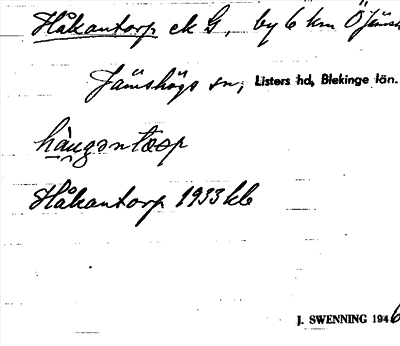 Håkantorp ek G, by 6 km Ö Jäms
Jämshögs sn, Listers hd, Blekinge län.
Håkantorp 1933 kb
J. SWENNING 1946